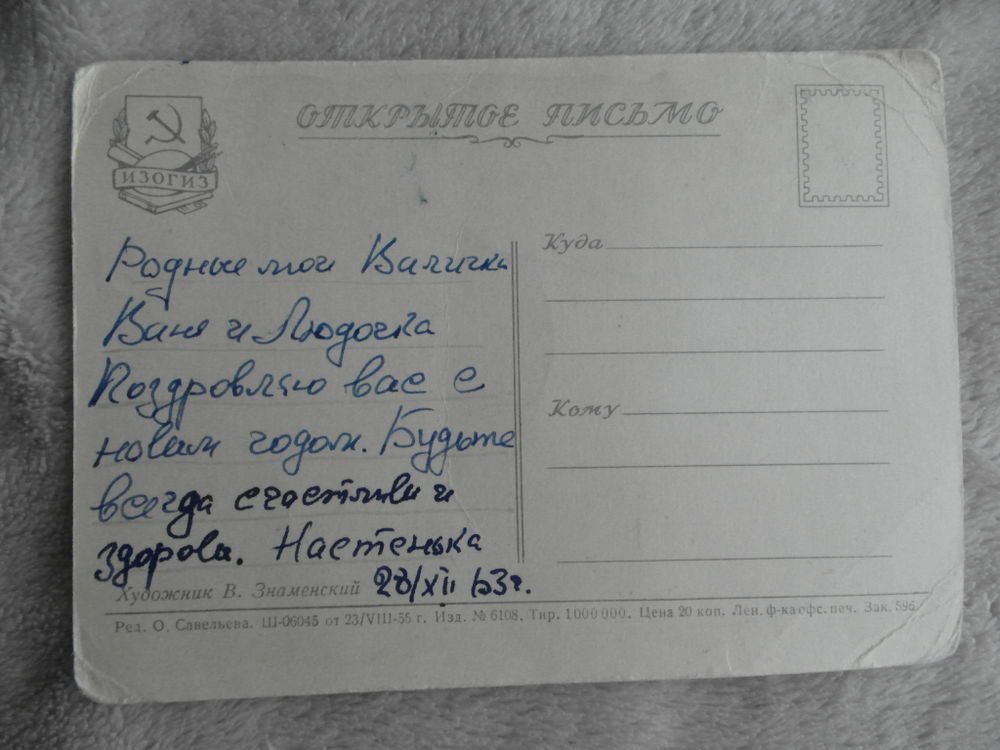 ОТКРЫТОЕ ПИСЬМО
ИЗОГИЗ
Родные мои Валичка
Ваня и Людочка
Поздровляю вас с
новым годом. Будьте
всегда счастливи и
здорови. Настенька
28/XII 63г.
Куда
Кому
Художник В. Знаменский
Ред. О. Савельева. Ш-06045 от 23/VIII-55 г. Изд. № 6108. Тир. 1 000 000. Цена 20 коп. Лен. ф-ка офс. печ. Зак. 596